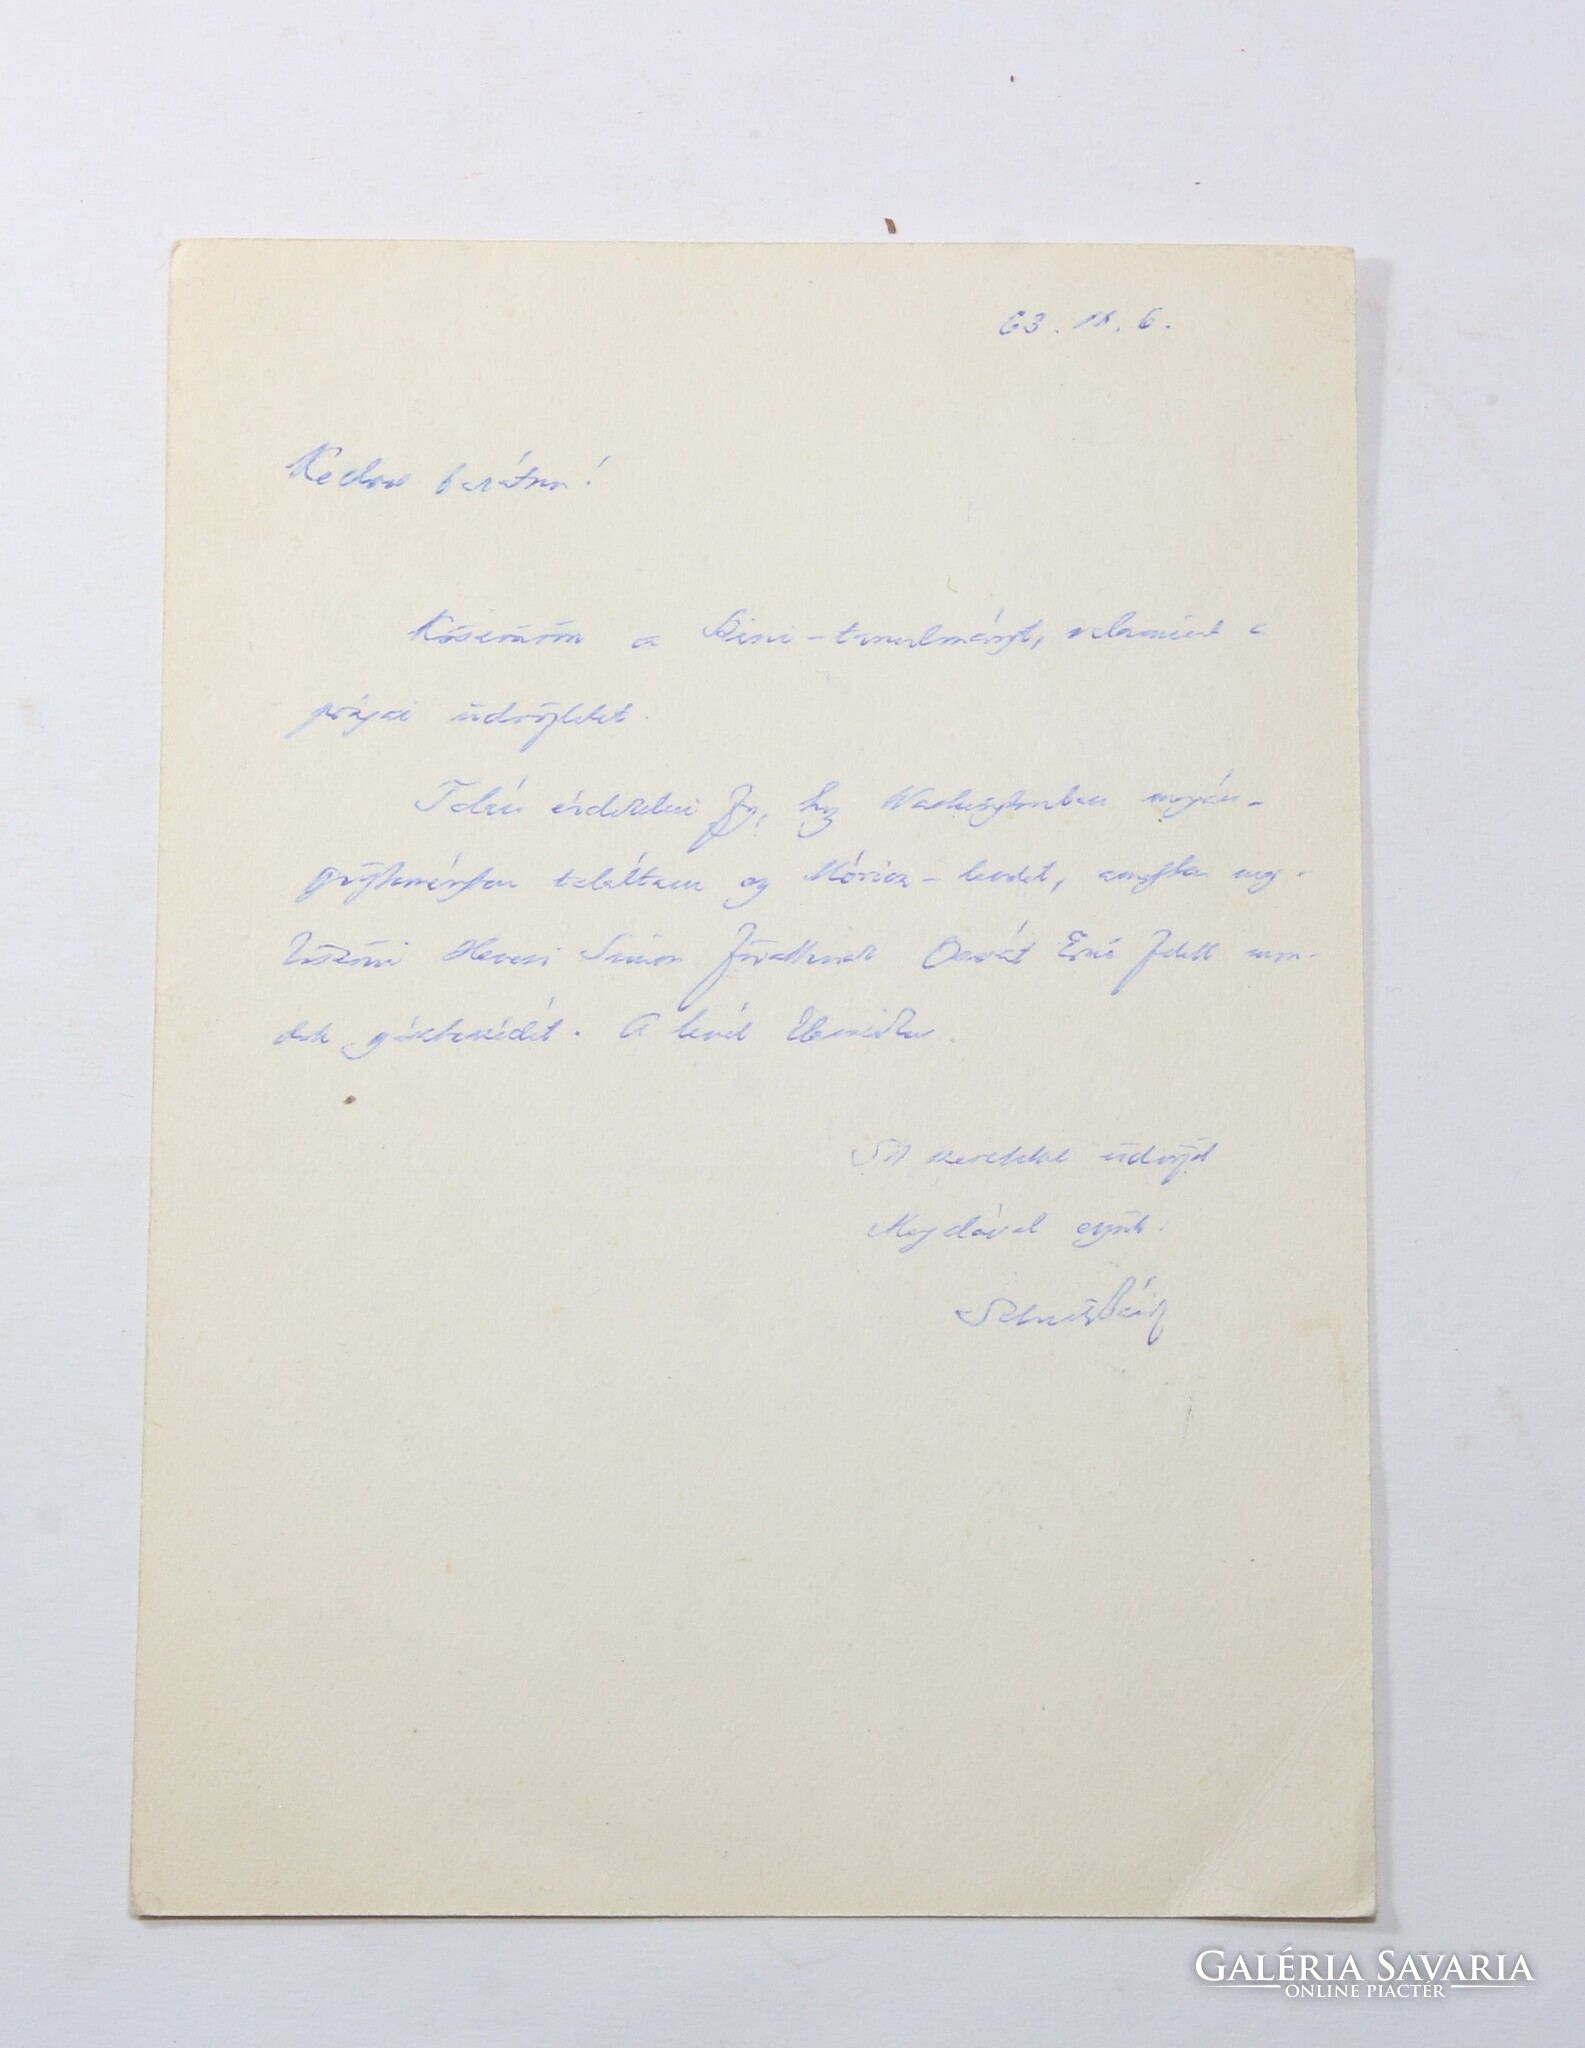 63. IX. 6.
Kedves barátom!
Köszönöm a Szini-tanulmányt, valamint a
prágai üdvözletet.
Talán érdekelni fog, hogy Washingtonban magán-
gyűjteményben találtam egy Móricz-levelet, amelyben meg-
köszöni Hevesi Simon főrabbinak Osvát Ernő felett mon-
dott gyászbeszédét. A levél
Sok szeretettel üdvözöl
Magdával együtt:
GALÉRIA SAVARIA
ONLINE PIACTÉR